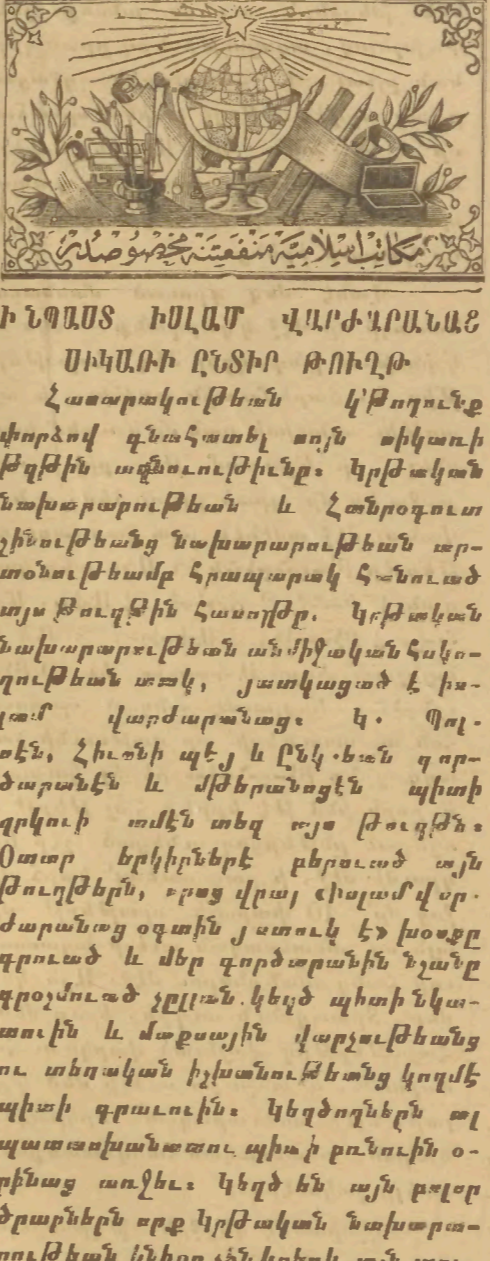 مكاتب اسلامیه منفعتنه مخصوصدر
Ի ՆՊԱՍՏ ԻՍԼԱՄ ՎԱՐԺԱՐԱՆԱՑ
ՍԻԿԱՌԻ ԸՆՏԻՐ ԹՈՒՂԹ
Հասարակութեան կ՚թողունք
փորձով գնահատել սոյն սիկառի
թղթին ազնուութիւնը։ Կրթական
նախարարութեան և Հանրօգուտ
շինութեանց նախարարութեան ար-
տօնութեամբ հրապարակ հանուած
այս թուղթին հասոյթը. Կրթական
նախարարութեան անմիջական հսկո-
ղութեան տակ, յատկացած է իս-
լամ վարժարանաց։ Կ. Պոլ-
սէն, Հիւսնի պէյ և Ընկ.եան գոր-
ծարանէն և մթերանոցէն պիտի
զրկուի ամէն տեղ այս թուղթն։
Օտար երկիրներէ բերուած այն
թուղթերն, որոց վրայ «իսլամ վար-
ժարանաց օգտին յատուկ է» խօսքը
գրուած և մեր գործարանին նշանը
դրօշմուած չըլլան. կեղծ պիտի նկա-
տուին և մաքսային վարչութեանց
ու տեղական իշխանութեանց կողմէ
պիտի գրաւուին։ Կեղծողներն ալ
պատասխանատու պիտի բռնուին օ-
րինաց առջեւ։ Կեղծ են այն բոլոր
ծրարներն որք Կրթական նախարա-
րութեան կնիքը չեն կրեր